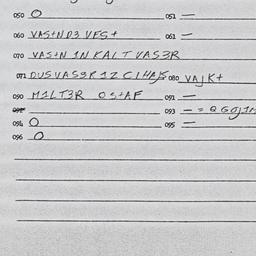 050 O 051 —
060 VAS+ND3 VFS+ 061 —
070 VAS+N 1N KALT VAS3R
071 DUSVAS3R 1Z C1HA/S 080 VAJK+
090 M1LT3R OS+AF 091 —
093 — = QGOJ1M
094 O 095 —
096 O